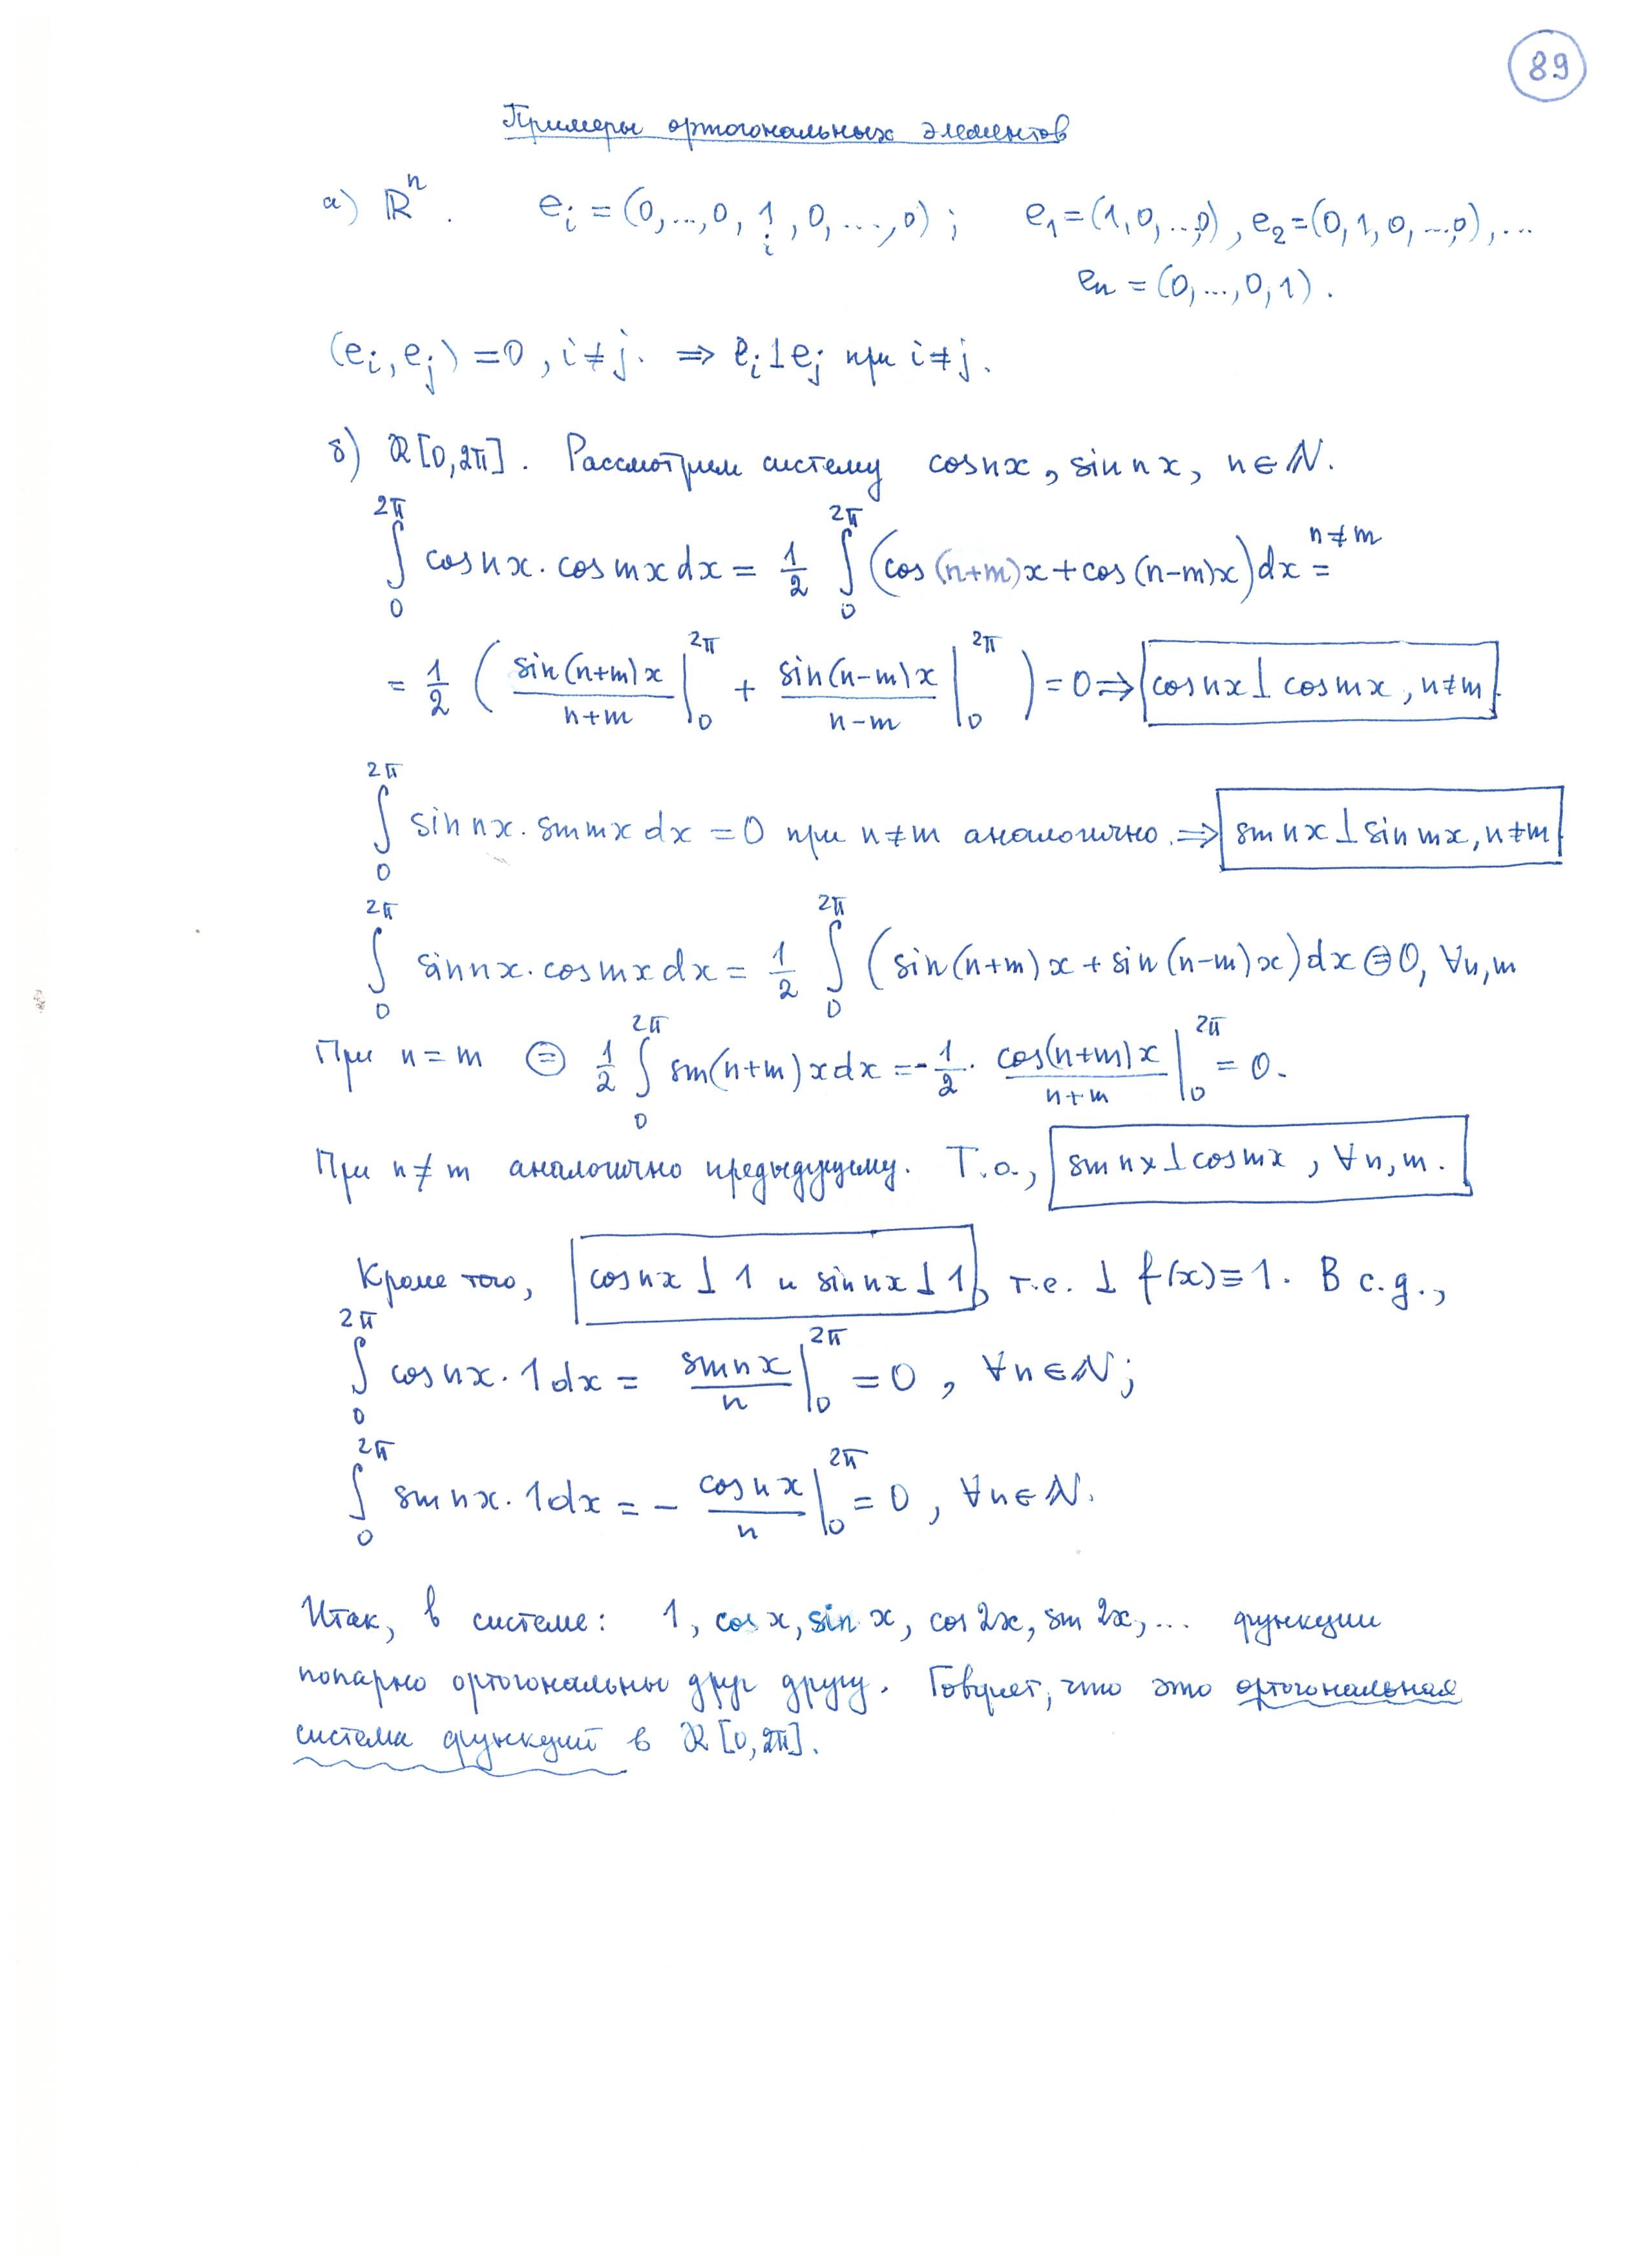 89
Примеры ортогональных элементов
а) ℝⁿ. e_i = (0,...,0, 1, 0,...,0); e_1=(1,0,...,0), e_2=(0,1,0,...,0),...
i
e_n = (0,...,0,1).
(e_i, e_j) = 0, i≠j. ⇒ e_i ⊥ e_j при i≠j.
б) ℛ[0,2π]. Рассмотрим систему cos nx, sin nx, n∈ℕ.
∫_0^{2π} cos nx · cos mx dx = 1/2 ∫_0^{2π} (cos(n+m)x + cos(n-m)x) dx =^{n≠m}
= 1/2 ( sin(n+m)x/(n+m) |_0^{2π} + sin(n-m)x/(n-m) |_0^{2π} ) = 0 ⇒ cos nx ⊥ cos mx, n≠m
∫_0^{2π} sin nx · sin mx dx = 0 при n≠m аналогично. ⇒ sin nx ⊥ sin mx, n≠m
∫_0^{2π} sin nx · cos mx dx = 1/2 ∫_0^{2π} (sin(n+m)x + sin(n-m)x) dx ⊜ 0, ∀n,m
При n=m ⊜ 1/2 ∫_0^{2π} sin(n+m)x dx = -1/2 · cos(n+m)x/(n+m) |_0^{2π} = 0.
При n≠m аналогично предыдущему. Т.о., sin nx ⊥ cos mx, ∀n,m.
Кроме того, cos nx ⊥ 1 и sin nx ⊥ 1, т.е. ⊥ f(x)≡1. В с.д.,
∫_0^{2π} cos nx · 1 dx = sin nx/n |_0^{2π} = 0, ∀n∈ℕ;
∫_0^{2π} sin nx · 1 dx = - cos nx/n |_0^{2π} = 0, ∀n∈ℕ.
Итак, в системе: 1, cos x, sin x, cos 2x, sin 2x,... функции
попарно ортогональны друг другу. Говорят, что это ортогональная
система функций в ℛ[0,2π].